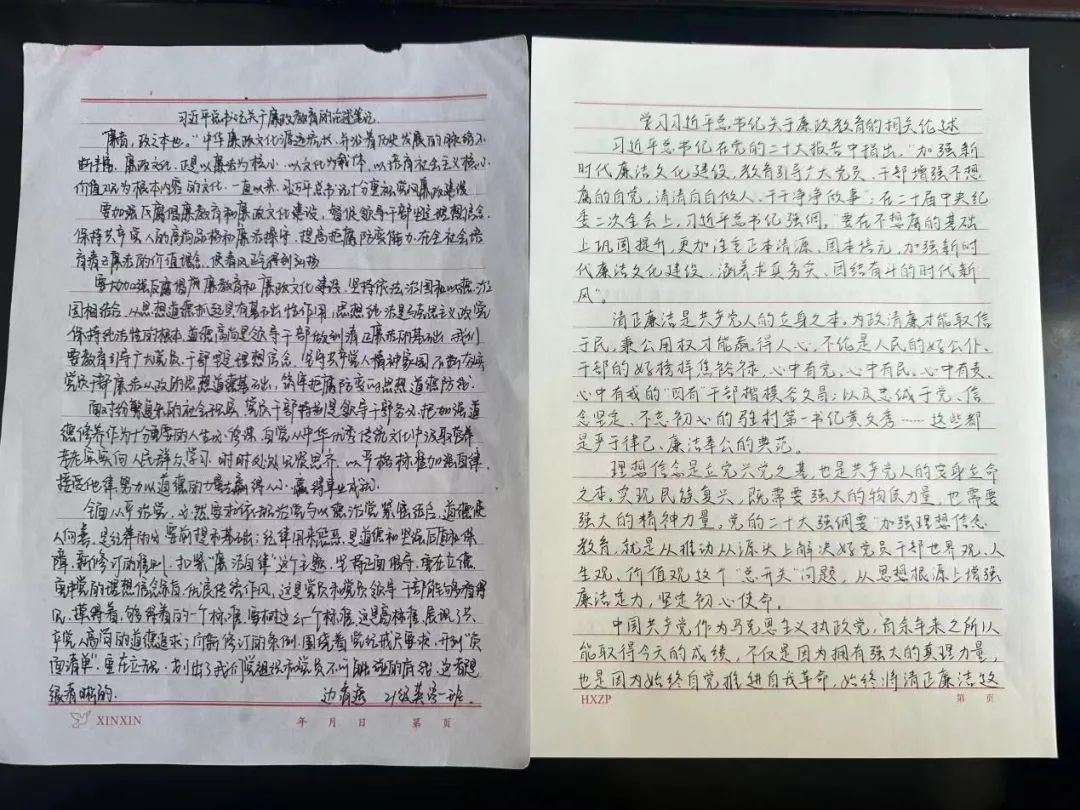 习近平总书记关于廉政教育的论述笔记
“廉者，政之本也。”中华廉政文化源远流长，并沿着历史发展的脉络不
断丰富。廉政文化，正是以廉洁为核心，以文化为载体，以培育社会主义核心
价值观为根本内容的文化，一直以来，习近平总书记十分重视党风廉政建设
要加强反腐倡廉教育和廉政文化建设，督促领导干部坚定理想信念，
保持共产党人的高尚品格和廉洁操守，提高拒腐防变能力，在全社会培
育清正廉洁的价值理念，使清风正气得到弘扬
要大力加强反腐倡廉教育和廉政文化建设，坚持依法治国和以德治
国相结合，从思想道德抓起具有基础性作用，思想纯洁是马克思主义政党
保持纯洁性的根本，道德高尚是领导干部做到清正廉洁的基础，我们
要教育引导广大党员、干部坚定理想信念，坚守共产党人精神家园，不断夯实
党员干部廉洁从政的思想道德基础，筑牢拒腐防变的思想道德防线。
面对纷繁复杂的社会现实，党员干部特别是领导干部务必把加强道
德修养作为十分重要的人生必修课，自觉从中华优秀传统文化中汲取营养
老老实实向人民群众学习，时时处处见贤思齐，以严格标准加强自律，
接受他律，努力以道德的力量赢得人心，赢得事业成就。
全面从严治党，必然要求依规治党与以德治党紧密结合。道德使
人向善，是纪律的必要前提和基础；纪律用来惩恶，是道德和坚强后盾和保
障，新修订的准则，扣紧“廉洁自律”这个主题，坚持正面倡导，重在立德，
党的理想信念宗旨、优良传统作风，这是党员和党员领导干部能够看得
见、摸得着，够得着的一个标准，要树这个标准，这是高标准，展现了共
产党人高尚的道德追求；而新修订的条例，围绕着党纪戒尺要求，开列“负
面清单”，重在立规，划出了我们党组织和党员不可触碰的底线，这个想
很清晰的.
21级英语一班.
XINXIN
年 月 日 第 页
学习习近平总书纪关于廉政教育的相关论述
习近平总书纪在党的二十大报告中指出，“加强新
时代廉洁文化建设，教育引导广大党员、干部增强不想
腐的自觉，清清白白做人、干干净净做事”；在二十届中央纪
委二次全会上，习近平总书纪强调，“要在不想腐的基础
上巩固提升，更加注重正本清源、固本培元，加强新时
代廉洁文化建设，涵养求真务实、团结奋斗的时代新
风”。
清正廉洁是共产党人的立身之本。为政清廉才能取信
于民，秉公用权才能赢得人心，不论是人民的好公仆、
干部的好榜样焦裕禄，心中有党、心中有民、心中有责、
心中有戒的“四有”干部楷模谷文昌；以及忠诚于党、信
念坚定、不忘初心的驻村第一书纪黄文秀……这些都
是严于律己、廉洁奉公的典范。
理想信念是立党兴党之基，也是共产党人的安身立命
之本，实现民族复兴，既需要强大的物质力量，也需要
强大的精神力量。党的二十大强调要“加强理想信念
教育，就是从推动从源头上解决好党员干部世界观、人
生观、价值观这个“总开关”问题，从思想根源上增强
廉洁定力，坚定初心使命。
中国共产党作为马克思主义执政党，百余年来之所以
能取得今天的成绩，不仅是因为拥有强大的真理力量，
也是因为始终自觉推进自我革命，始终将清正廉洁这
HXZP
第 页